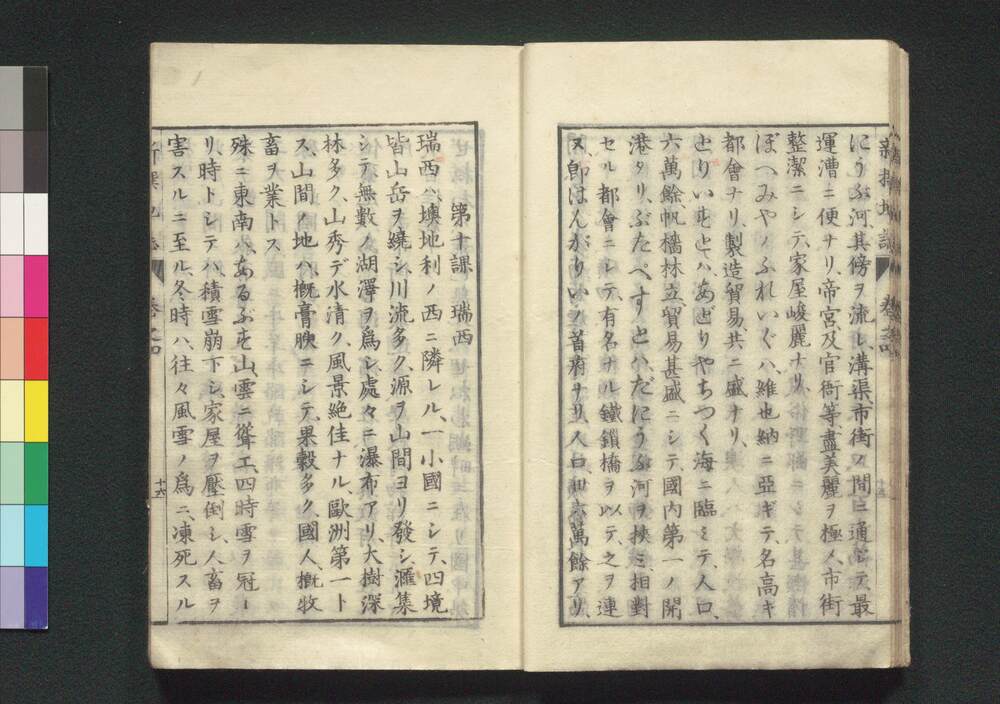 にうぶ河、其傍ヲ流レ、溝渠、市街ノ間ニ通シテ、最
運漕ニ便ナリ、帝宮及官衙等、盡美麗ヲ極メ、市街
整潔ニシテ、家屋峻麗ナリ、
ぼへみやノふれいぐハ、維也納ニ亞ギテ、名高キ
都會ナリ、製造貿易、共ニ盛ナリ、
とりいすとハ、あどりやちつく海ニ臨ミテ、人口、
六萬餘、帆檣林立、貿易甚盛ニシテ、國内第一ノ開
港タリ、ぶたぺすとハ、だにうぶ河ヲ挾ミ、相對
セル都會ニシテ、有名ナル鐵鎖橋ヲ以テ、之ヲ連
ヌ、卽はんがりいノ首府ナリ、人口卅六萬餘アリ、
第十課 瑞西
瑞西ハ、墺地利ノ西ニ隣レル、一小國ニシテ、四境
皆山岳ヲ繞シ、川流多ク、源ヲ山間ヨリ發シ、滙集
シテ、無數ノ湖澤ヲ爲シ、處々ニ瀑布アリ、大樹深
林多ク、山秀デ水清ク、風景絶佳ナル、歐洲第一ト
ス、山間ノ地ハ、概膏腴ニシテ、果穀多ク、國人、概牧
畜ヲ業トス、
殊ニ東南ハ、あるぶす山、雲ニ聳エ、四時雪ヲ冠一
リ、時トシテハ、積雪崩下シ、家屋ヲ壓倒シ、人畜ヲ
害スルニ至ル、冬時ハ、往々風雪ノ爲ニ、凍死スル
十六